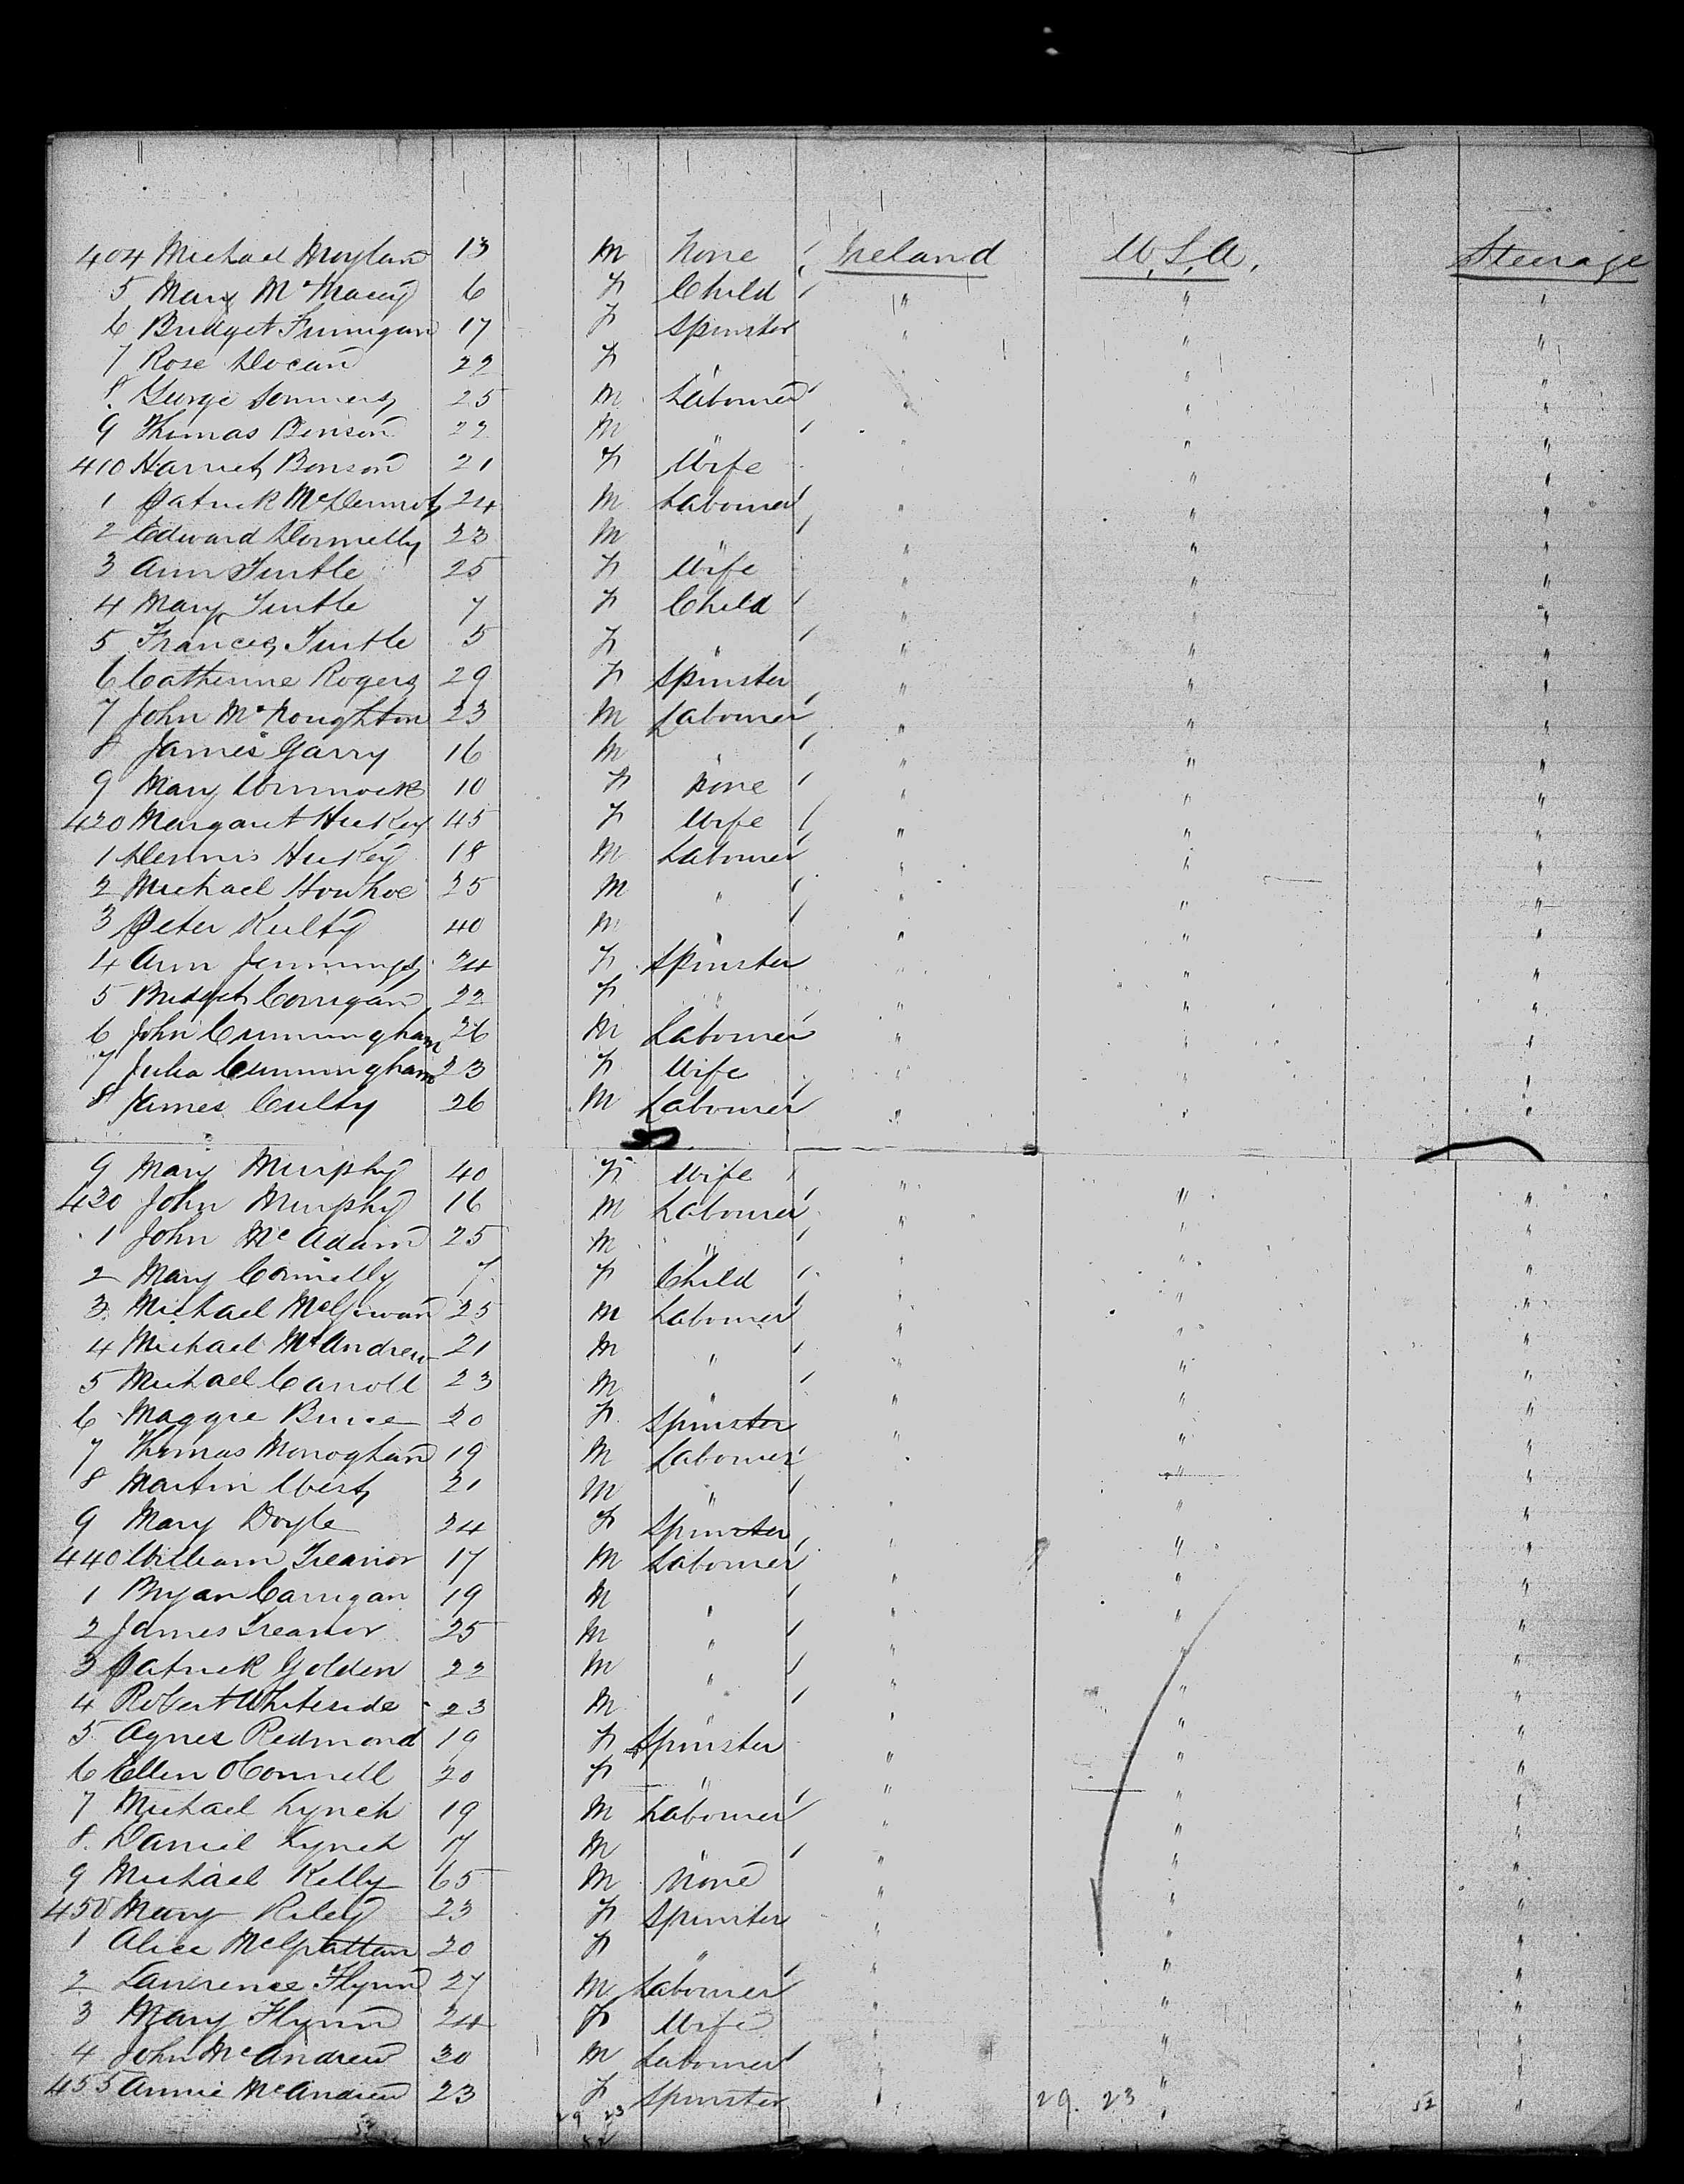 404 Michael Moylan 13 M None Ireland U.S.A. Steerage
5 Mary Mc 6 F Child " " "
6 Bridget Finnigan 17 F Spinster " " "
7 Rose Docan 22 F " " " "
8 George Sommers 25 M Labourer " " "
9 Thomas Benson 22 M " " " "
410 Harriet Benson 21 F Wife " " "
1 Patrick McDermot 24 M Labourer " " "
2 Edward Donnelly 23 M " " " "
3 Ann Tuttle 25 F Wife " " "
4 Mary Tuttle 7 F Child " " "
5 Frances Tuttle 5 F " " " "
6 Catherine Rogers 29 F Spinster " " "
7 John McNoughton 23 M Labourer " " "
8 James Garry 16 M " " " "
9 Mary 10 F None " " "
420 Margaret Huckey 45 F Wife " " "
1 Dennis Huckey 18 M Labourer " " "
2 Michael 25 M " " " "
3 Peter Kulty 40 M " " " "
4 Ann Jennings 24 F Spinster " " "
5 Bridget Corrigan 22 F " " " "
6 John Cunningham 26 M Labourer " " "
7 Julia Cunningham 23 F Wife " " "
8 James Culty 26 M Labourer " " "
9 Mary Murphy 40 F Wife " " "
430 John Murphy 16 M Labourer " " "
1 John McAdam 25 M " " " "
2 Mary Connelly 7 F Child " " "
3 Michael McGowan 25 M Labourer " " "
4 Michael McAndrew 21 M " " " "
5 Michael Carroll 23 M " " " "
6 Maggie Bruce 20 F Spinster " " "
7 Thomas Monoghan 19 M Labourer " " "
8 Martin West 21 M " " " "
9 Mary Doyle 24 F Spinster " " "
440 William Treanor 17 M Labourer " " "
1 Bryan Carrigan 19 M " " " "
2 James Treanor 25 M " " " "
3 Patrick Golden 22 M " " " "
4 Robert Whiteside 23 M " " " "
5 Agnes Redmond 19 F Spinster " " "
6 Ellen OConnell 20 F " " " "
7 Michael Lynch 19 M Labourer " " "
8 Daniel Lynch 17 M " " " "
9 Michael Kelly 65 M None " " "
450 Mary Riley 23 F Spinster " " "
1 Alice McGrattan 20 F " " " "
2 Lawrence Flynn 27 M Labourer " " "
3 Mary Flynn 24 F Wife " " "
4 John McAndrew 30 M Labourer " " "
455 Annie McAndrew 23 F Spinster " " "
29 23 29. 23 52
52 52